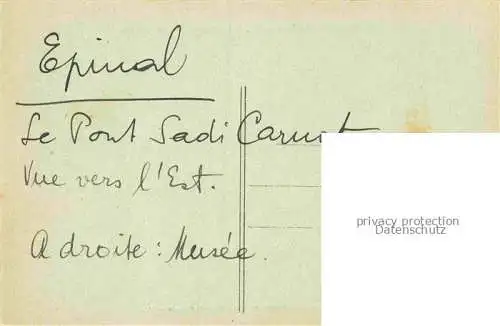 Epinal
Le Pont Sadi Carnot
Vue vers l'Est.
A droite : Musée.
privacy protection
Datenschutz